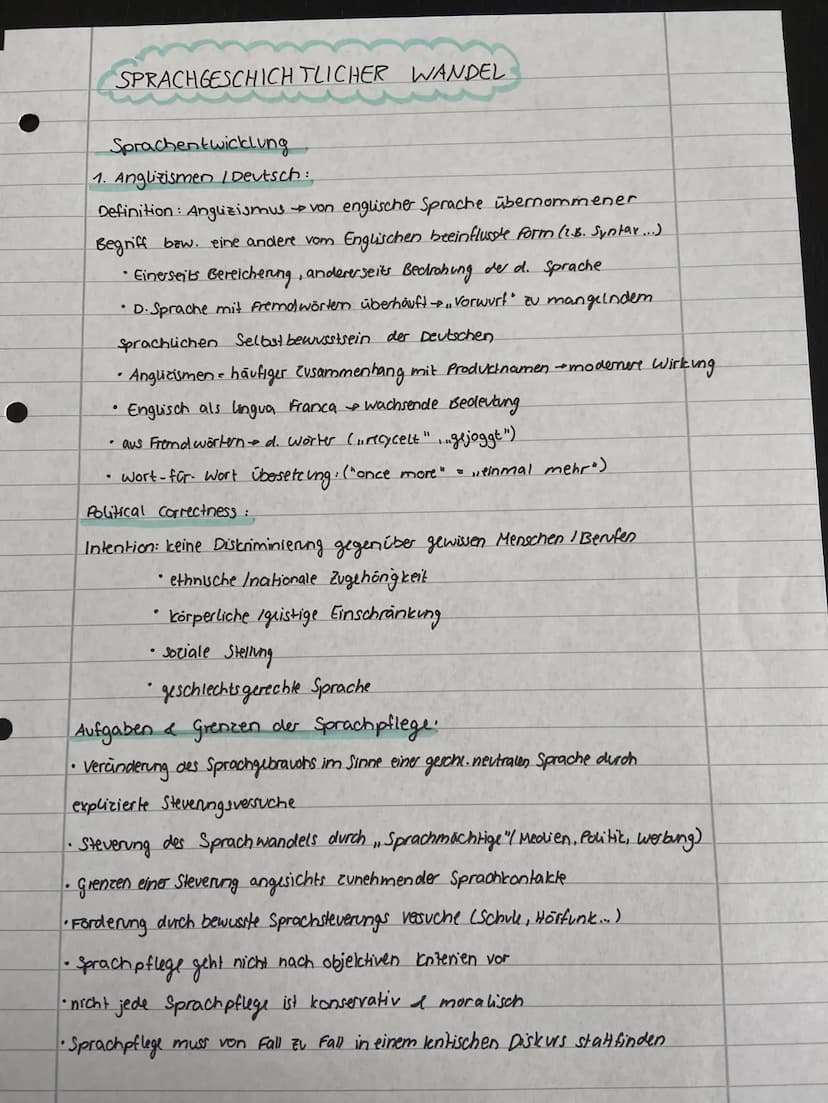 SPRACHGESCHICHTLICHER WANDEL
Sprachentwicklung
1. Anglizismen / Deutsch:
Definition: Anglizismus → von englischer Sprache übernommener
Begriff bzw. eine andere vom Englischen beeinflusste Form (z.B. Syntax...)
• Einerseits Bereicherung, andererseits Bedrohung der d. Sprache
• D. Sprache mit Fremdwörtern überhäuft → „Vorwurf" zu mangelndem
sprachlichen Selbstbewusstsein der Deutschen
• Anglizismen = häufiger Zusammenhang mit Productnamen → modernere Wirkung
• Englisch als Lingua Franca → wachsende Bedeutung
• aus Fremdwörtern → d. Wörter („recycelt", „gejoggt")
• Wort-für-Wort Übersetzung: ("once more" = „einmal mehr")
Political Correctness:
Intention: keine Diskriminierung gegenüber gewissen Menschen / Berufen
• ethnische /nationale Zugehörigkeit
• körperliche /geistige Einschränkung
• soziale Stellung
• geschlechtsgerechte Sprache
Aufgaben & Grenzen der Sprachpflege:
• Veränderung des Sprachgebrauchs im Sinne einer geschl. neutralen Sprache durch
explizierte Steuerungsversuche
• Steuerung des Sprachwandels durch „Sprachmächtige" (Medien, Politik, Werbung)
• Grenzen einer Steuerung angesichts zunehmender Sprachkontakte
• Förderung durch bewusste Sprachsteuerungs versuche (Schule, Hörfunk...)
• Sprachpflege geht nicht nach objektiven Kriterien vor
• nicht jede Sprachpflege ist konservativ & moralisch
• Sprachpflege muss von Fall zu Fall in einem kritischen Diskurs stattfinden